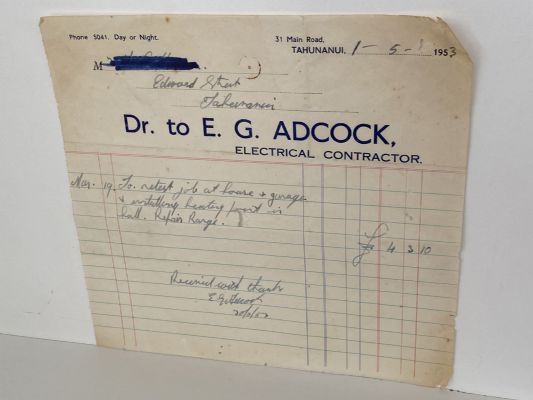 Phone 5041. Day or Night.
31 Main Road,
TAHUNANUI. 1 - 5 - 1953
M
Edward Street
Tahunanui
Dr. to E. G. ADCOCK,
ELECTRICAL CONTRACTOR.
Mar. 19. To retest job at house & garage
& installing heating point in
hall. Repair Range.
£ 4 3 10
Received with thanks
E G Adcock